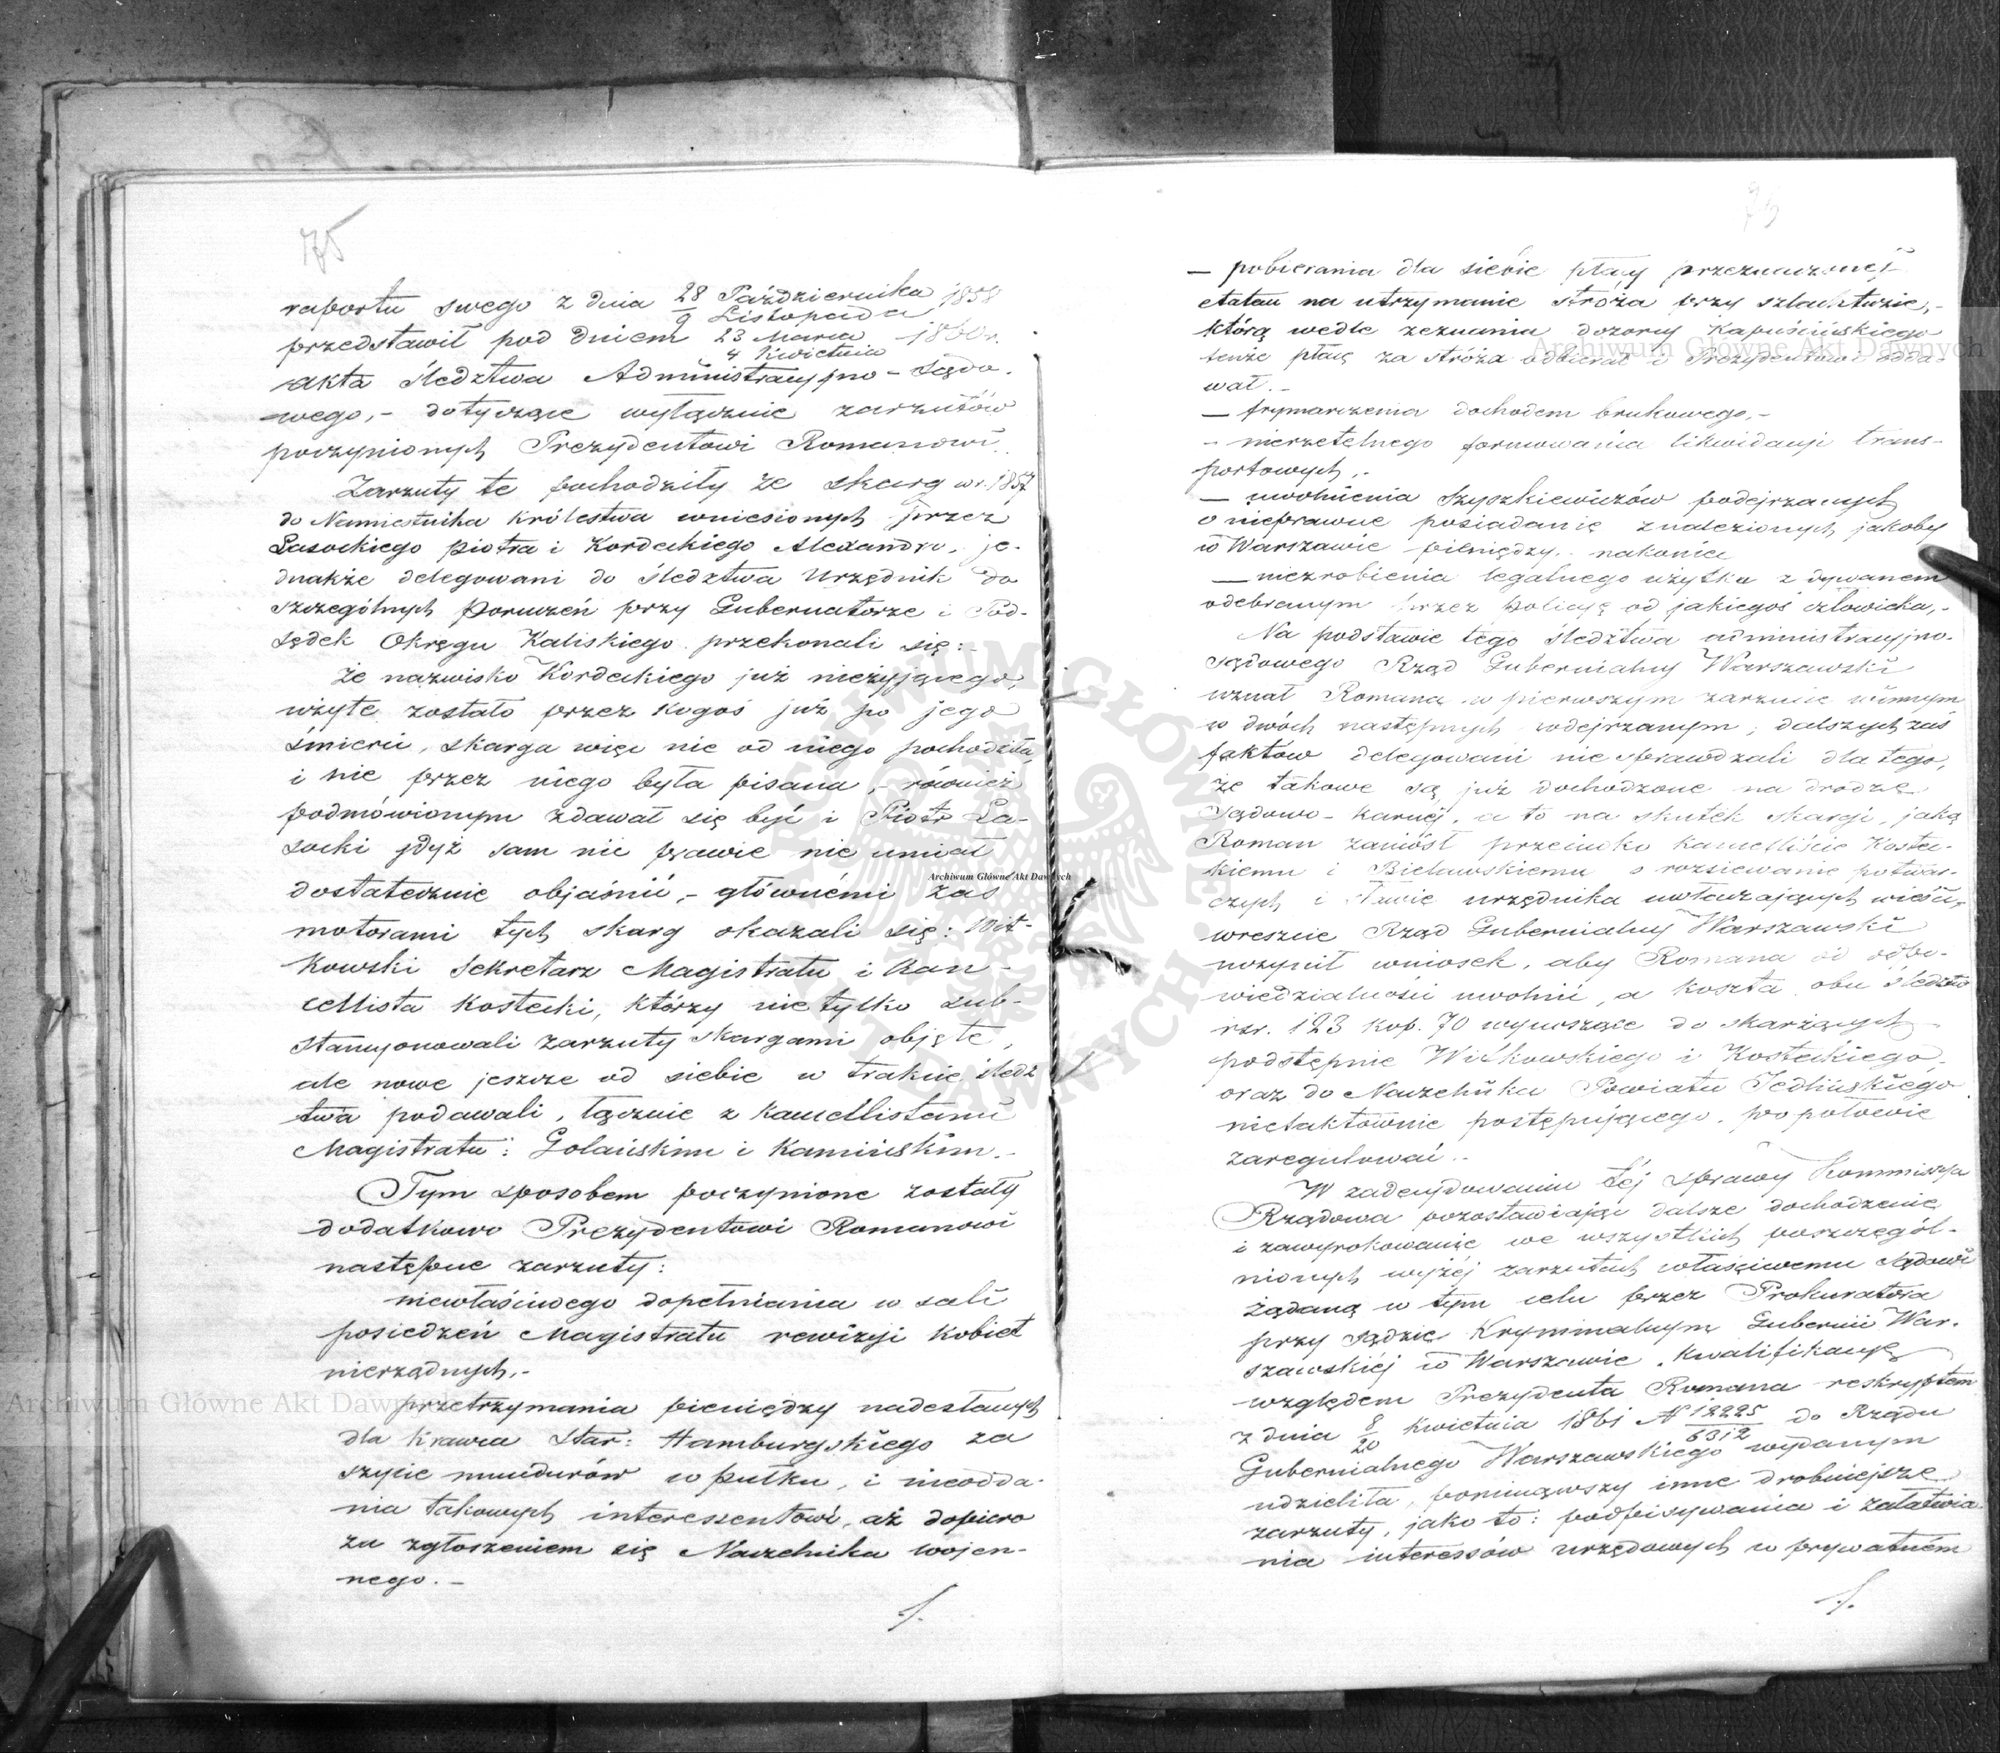 75
raportu swego z dnia 28 Października / 9 Listopada 1858
przedstawił pod dniem 23 Marca / 4 Kwietnia 1860 r.
akta śledztwa Administracyjno-Sądo-
wego,- dotyczące wyłącznie zarzutów
poczynionych Prezydentowi Romanowi.
Zarzuty te pochodziły ze skarg w r. 1857
do Namiestnika Królestwa wniesionych przez
Lasockiego Piotra i Kordeckiego Alexandra, je-
dnakże delegowani do śledztwa Urzędnik do
szczególnych Poruczeń przy Gubernatorze i Pod-
sędek Okręgu Kaliskiego przekonali się:-
Że nazwisko Kordeckiego już nieżyjącego,
użyte zostało przez kogoś już po jego
śmierci, skarga więc nie od niego pochodziła,
i nie przez niego była pisana,- również
podmówionym zdawał się być i Piotr La-
socki gdyż sam nic prawie nie umiał
dostatecznie objaśnić,- głównémi zaś
motorami tych skarg okazali się: Wit-
kowski Sekretarz Magistratu i Kan-
cellista Kostecki, którzy nie tylko sub-
stancyonowali zarzuty skargami objęte,
ale nowe jeszcze od siebie w trakcie śledz
twa podawali, łącznie z kancellistami
Magistratu: Golańskim i Kamińskim.-
Tym sposobem poczynione zostały
dodatkowo Prezydentowi Romanowi
następne zarzuty:
niewłaściwego dopełniania w sali
posiedzeń Magistratu rewizyi kobiet
nierządnych,-
przetrzymania pieniędzy nadesłanych
dla krawca Star: Hamburgskiego za
szycie mundurów w pułku, i nieodda-
nia takowych interessentowi, aż dopiero
za zgłoszeniem się Naczelnika wojen-
nego.-
./.
— pobierania dla siebie płacy przeznaczonéj
etatem na utrzymanie stróża przy szlachtuzie,-
którą wedle zeznania dozorcy Kapuścińskiego
tenże płacę za stróża odbierał i Prezydentowi odda-
wał.-
— frymarczenia dochodem brukowego,-
- nierzetelnego formowania likwidacyi trans-
portowych,-
— uwolnienia Szyszkiewiczów podejrzanych
o nieprawne posiadanie znalezionych jakoby
w Warszawie pieniędzy, nakoniec
— niezrobienia legalnego użytku z dywanem
odebranym przez Policyę od jakiegoś człowieka,-
Na podstawie tego śledztwa administracyjno-
sądowego Rząd Gubernialny Warszawski
uznał Romana w pierwszym zarzucie winnym
w dwóch następnych podejrzanym; dalszych zaś
faktów delegowani nie sprawdzali dla tego,
że takowe są już dochodzone na drodze
Sądowo-karnéj, a to na skutek skargi, jaką
Roman zaniósł przeciwko kancelliście Kostec-
kiemu i Bielawskiemu o rozsiewanie potwar-
czych i sławie urzędnika uwłaczających wieści,
wreszcie Rząd Gubernialny Warszawski
uczynił wniosek, aby Romana od odpo-
wiedzialności uwolnić, a koszta obu śledztw
rsr. 123 kop. 70 wynoszące do skarżących
podstępnie Witkowskiego i Kosteckiego
oraz do Naczelnika Powiatu Jedlińskiego
nietaktownie postępującego, po połowie
zaregulować.-
W zadecydowaniu téj sprawy Kommissya
Rządowa pozostawiając dalsze dochodzenie
i zawyrokowanie we wszystkich poszczegól-
nionych wyżéj zarzutach właściwemu Sądowi
żądaną w tym celu przez Prokuratora
przy Sądzie Kryminalnym Gubernii War-
szawskiéj w Warszawie, kwalifikacyę
względem Prezydenta Romana reskryptem
z dnia 8/20 Kwietnia 1861 N 12225/6312 do Rządu
Gubernialnego Warszawskiego wydanym
udzieliła, pominąwszy inne drobniejsze
zarzuty, jako to: podpisywania i załatwia-
nia interessów urzędowych w prywatném
./.
Archiwum Główne Akt Dawnych
Archiwum Główne Akt Dawnych
Archiwum Główne Akt Dawnych
ARCHIWUM GŁÓWNE AKT DAWNYCH